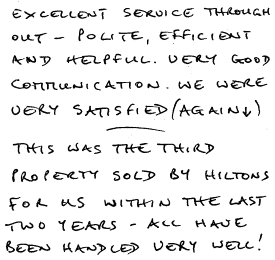 EXCELLENT SERVICE THROUGH
OUT - POLITE, EFFICIENT
AND HELPFUL. VERY GOOD
COMMUNICATION. WE WERE
VERY SATISFIED (AGAIN↓)
THIS WAS THE THIRD
PROPERTY SOLD BY HILTONS
FOR US WITHIN THE LAST
TWO YEARS - ALL HAVE
BEEN HANDLED VERY WELL!